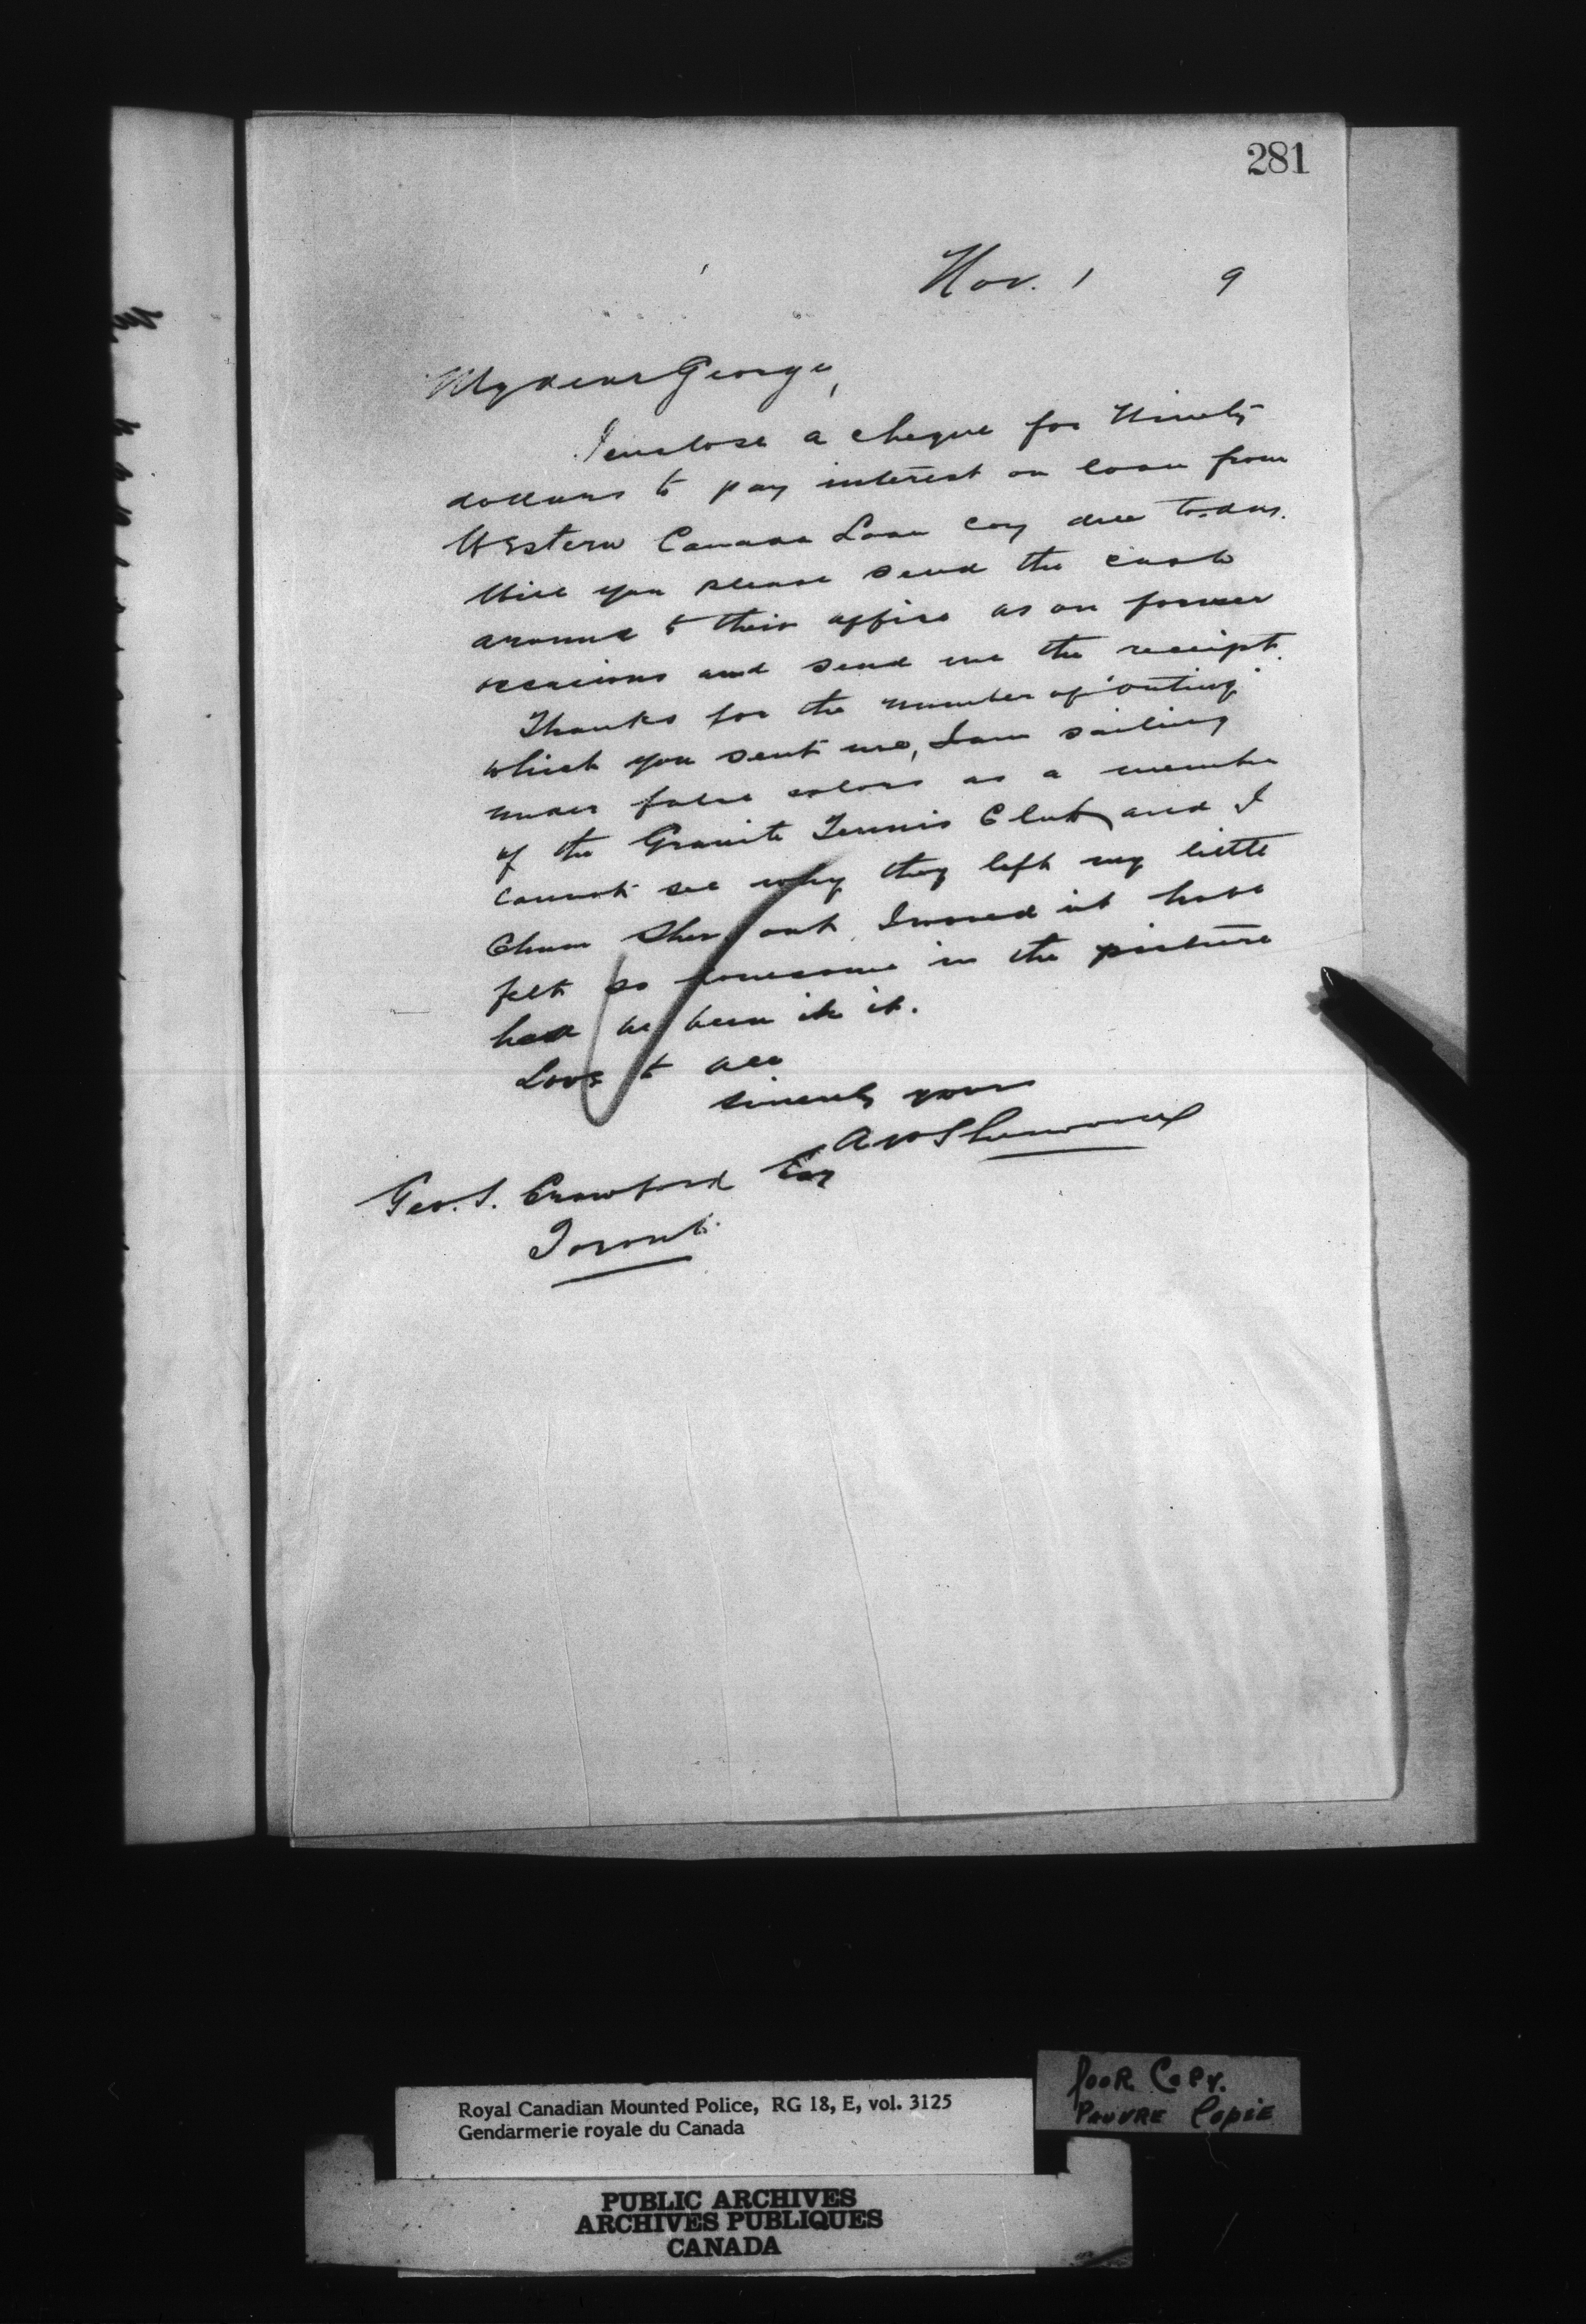 281
Nov. 1 9
My dear George,
I enclose a cheque for Ninety
dollars to pay interest on loan from
Western Canada Loan Coy due to-day.
Will you please send the cash
around to their office as on former
occasions and send me the receipt.
Thanks for the number of "Outing"
which you sent me, I am sailing
under false colors as a member
of the Granite Tennis Club and I
cannot see why they left my little
Chum out. I would not have
felt so lonesome in the picture
had he been in it.
Love to all
sincerely yours
A P Sherwood
Geo. S. Crawford Esq
Toronto
Royal Canadian Mounted Police, RG 18, E, vol. 3125
Gendarmerie royale du Canada
Poor Copy.
Pauvre Copie
PUBLIC ARCHIVES
ARCHIVES PUBLIQUES
CANADA